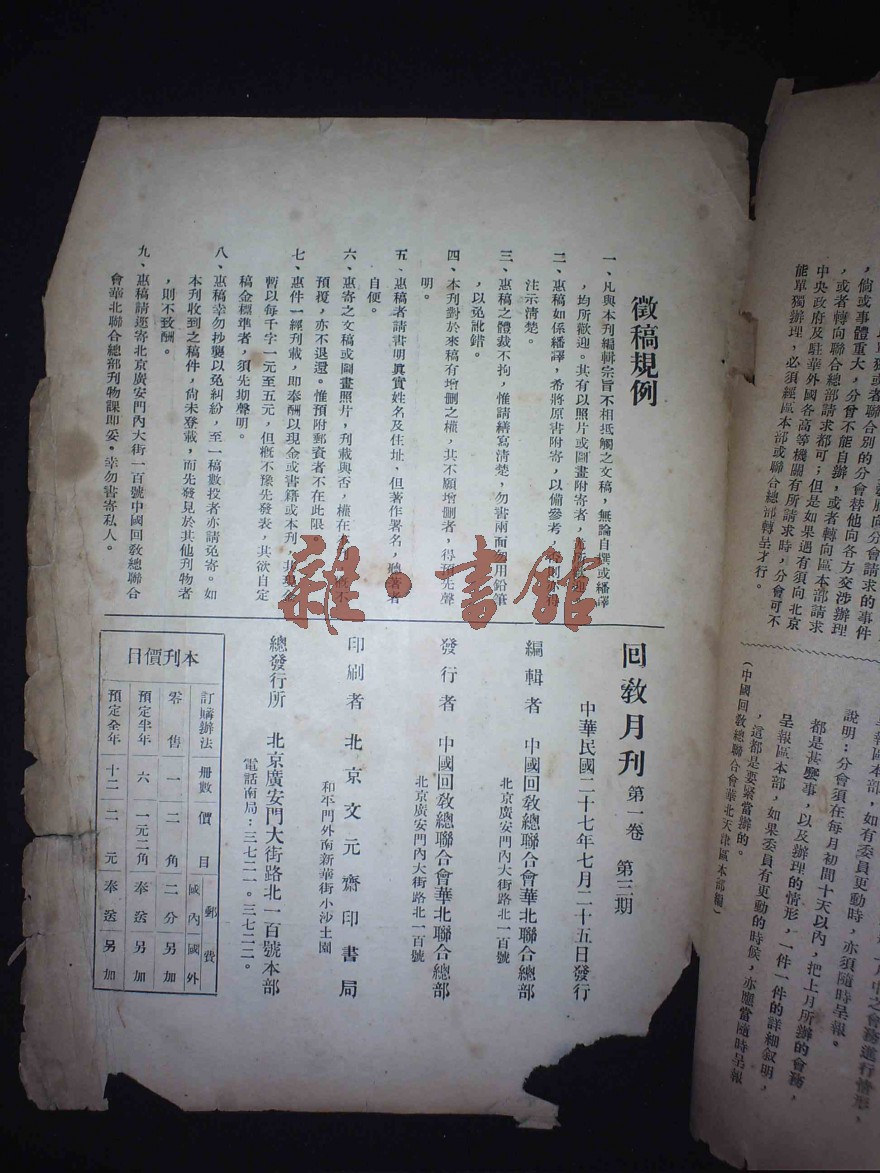 ，倘或事體重大，分會不能自辦，或者轉向區本部請求
，或者轉向聯合總部請求都可；但是如果遇有須向北京
中央政府及駐華外國各高等機關有所請求時，分會可不
能單獨辦理，必須經區本部或聯合總部轉呈才行。
說明：分會須在每月初間十天以內，把上月所辦的會務，
都是甚麼事，以及辦理的情形，一件一件的詳細叙明，
呈報區本部，如果委員有更動的時候，亦應當隨時呈報
，這都是要緊當辦的。
（中國回敎總聯合會華北天津區本部編）
徵稿規例
一、凡與本刊編輯宗旨不相抵觸之文稿，無論自撰或繙譯
，均所歡迎。其有以照片或圖畫附寄者，
二、惠稿如係繙譯，希將原書附寄，以備參考，
注示清楚。
三、惠稿之體裁不拘，惟請繕寫清楚，勿書兩面勿用鉛筆
，以免訛錯。
四、本刊對於來稿有增刪之權，其不願增刪者，得預先聲
明。
五、惠稿者請書明眞實姓名及住址，但著作署名，聽著者
自便。
六、惠寄之文稿或圖畫照片，刊載與否，權在本刊，概不
預覆，亦不退還。惟預附郵資者不在此限。
七、惠件一經刊載，即奉酬以現金或書籍或本刊，
暫以每千字一元至五元，但概不豫先發表，其欲自定
稿金標準者，須先期聲明。
八、惠稿幸勿抄襲以免糾紛，至一稿數投者亦請免寄。如
本刊收到之稿件，尙未登載，而先發見於其他刊物者
，則不致酬。
九、惠稿請逕寄北京廣安門內大街一百號中國回敎總聯合
會華北聯合總部刊物課即妥。幸勿書寄私人。
回敎月刊 第一卷 第三期
中華民國二十七年七月二十五日發行
編輯者 中國回敎總聯合會華北聯合總部
北京廣安門內大街路北一百號
發行者 中國回敎總聯合會華北聯合總部
北京廣安門內大街路北一百號
印刷者 北京文元齋印書局
和平門外南新華街小沙土園
總發行所 北京廣安門大街路北一百號本部
電話南局：三七二一。三七二二。
本刊價目
訂購辦法 册數 價目 郵費 國內 國外
零售 一 二角 二分 另加
預定半年 六 一元二角 奉送 另加
預定全年 十二 二元 奉送 另加
雜·書館